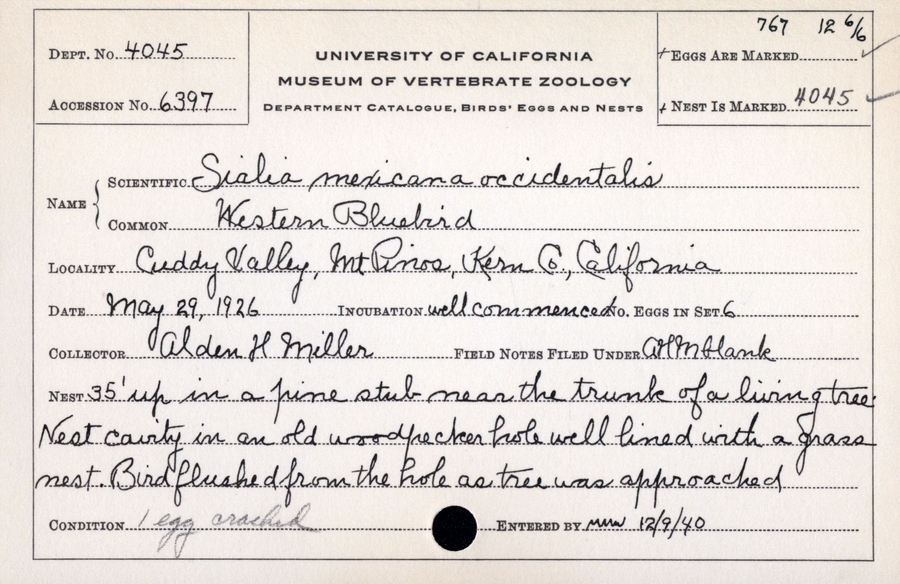 767 12 6/6
DEPT. No. 4045
UNIVERSITY OF CALIFORNIA
+ EGGS ARE MARKED
MUSEUM OF VERTEBRATE ZOOLOGY
ACCESSION No. 6397
DEPARTMENT CATALOGUE, BIRDS' EGGS AND NESTS
+ NEST IS MARKED 4045
NAME { SCIENTIFIC Sialia mexicana occidentalis
COMMON Western Bluebird
LOCALITY Cuddy Valley, Mt Pinos, Kern Co., California
DATE May 29, 1926 INCUBATION well commenced No. EGGS IN SET 6
COLLECTOR Alden H Miller FIELD NOTES FILED UNDER AHM blank
NEST 35' up in a pine stub near the trunk of a living tree.
Nest cavity in an old woodpecker hole well lined with a grass
nest. Bird flushed from the hole as tree was approached
CONDITION 1 egg cracked ENTERED BY 12/9/40